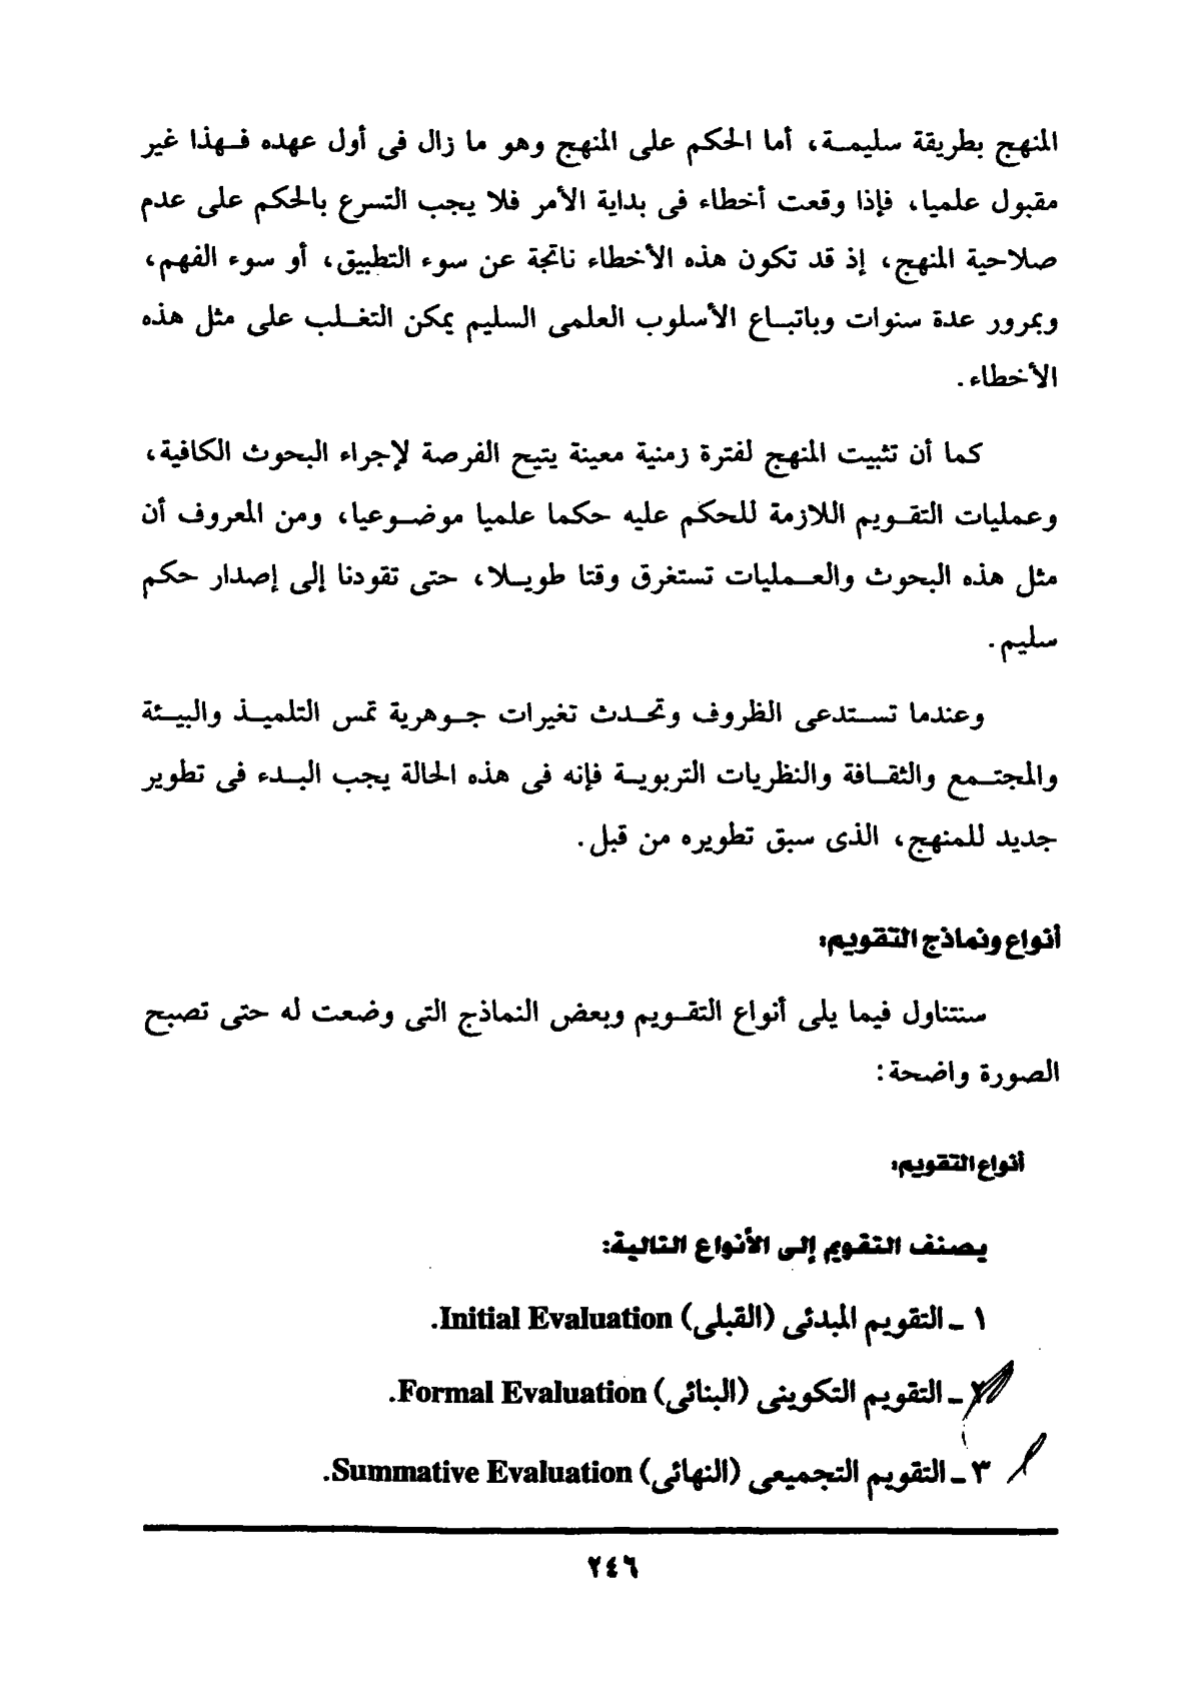 المنهج بطريقة سليمة، أما الحكم على المنهج وهو ما زال فى أول عهده فهذا غير
مقبول علميا، فإذا وقعت أخطاء فى بداية الأمر فلا يجب التسرع بالحكم على عدم
صلاحية المنهج، إذ قد تكون هذه الأخطاء ناتجة عن سوء التطبيق، أو سوء الفهم،
وبمرور عدة سنوات وباتباع الأسلوب العلمى السليم يمكن التغلب على مثل هذه
الأخطاء.
كما أن تثبيت المنهج لفترة زمنية معينة يتيح الفرصة لإجراء البحوث الكافية،
وعمليات التقويم اللازمة للحكم عليه حكما علميا موضوعيا، ومن المعروف أن
مثل هذه البحوث والعمليات تستغرق وقتا طويلا، حتى تقودنا إلى إصدار حكم
سليم.
وعندما تستدعى الظروف وتحدث تغيرات جوهرية تمس التلميذ والبيئة
والمجتمع والثقافة والنظريات التربوية فإنه فى هذه الحالة يجب البدء فى تطوير
جديد للمنهج، الذى سبق تطويره من قبل.
أنواع ونماذج التقويم:
سنتناول فيما يلى أنواع التقويم وبعض النماذج التى وضعت له حتى تصبح
الصورة واضحة:
أنواع التقويم:
يصنف التقويم إلى الأنواع التالية:
١ ـ التقويم المبدئى (القبلى) Initial Evaluation.
٢ ـ التقويم التكوينى (البنائى) Formal Evaluation.
٣ ـ التقويم التجميعى (النهائى) Summative Evaluation.
٢٤٦